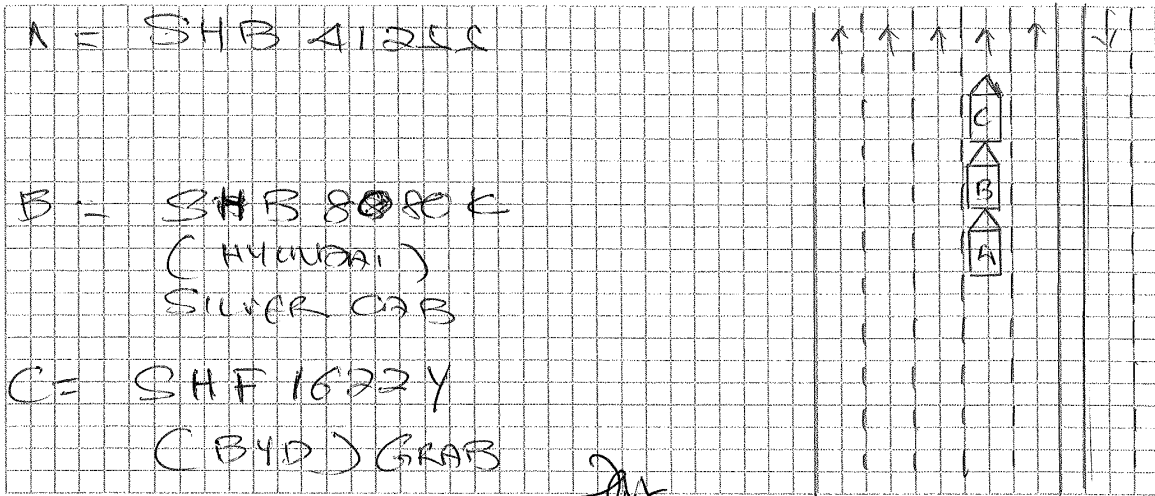 A = SHB 4125S
B = SHB 8080K
(HYUNDAI)
SILVER CAB
C = SHF 1622Y
(BYD) GRAB
C
B
A